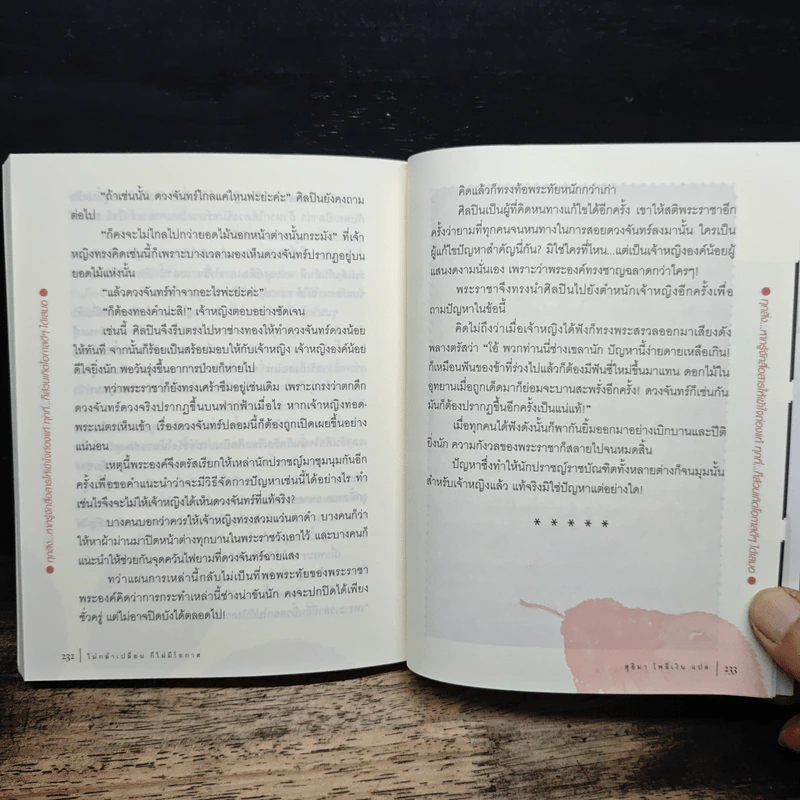 "ถ้าเช่นนั้น ดวงจันทร์ไกลแค่ไหนพ่ะย่ะค่ะ" ศิลปินยังคงถาม
ต่อไป
"ก็คงจะไม่ไกลไปกว่ายอดไม้นอกหน้าต่างนั้นกระมัง" ที่เจ้า
หญิงทรงคิดเช่นนี้ก็เพราะบางเวลามองเห็นดวงจันทร์ปรากฏอยู่บน
ยอดไม้แห่งนั้น
"แล้วดวงจันทร์ทำจากอะไรพ่ะย่ะค่ะ"
"ก็ต้องทองคำน่ะสิ!" เจ้าหญิงตอบอย่างชัดเจน
เช่นนี้ ศิลปินจึงรีบตรงไปหาช่างทองให้ทำดวงจันทร์ดวงน้อย
ให้ทันที จากนั้นก็ร้อยเป็นสร้อยมอบให้กับเจ้าหญิง เจ้าหญิงองค์น้อย
ดีใจยิ่งนัก พอวันรุ่งขึ้นอาการป่วยก็หายไป
ทว่าพระราชาก็ยังทรงเศร้าซึมอยู่เช่นเดิม เพราะเกรงว่าตกดึก
ดวงจันทร์ดวงจริงปรากฏขึ้นบนฟากฟ้าเมื่อไร หากเจ้าหญิงทอด-
พระเนตรเห็นเข้า เรื่องดวงจันทร์ปลอมนี้ก็ต้องถูกเปิดเผยขึ้นอย่าง
แน่นอน
เหตุนี้พระองค์จึงตรัสเรียกให้เหล่านักปราชญ์มาชุมนุมกันอีก
ครั้งเพื่อขอคำแนะนำว่าจะมีวิธีจัดการปัญหาเช่นนี้ได้อย่างไร ทำ
เช่นไรจึงจะไม่ให้เจ้าหญิงได้เห็นดวงจันทร์ที่แท้จริง?
บางคนบอกว่าควรให้เจ้าหญิงทรงสวมแว่นตาดำ บางคนก็ว่า
ให้หาผ้าม่านมาปิดหน้าต่างทุกบานในพระราชวังเอาไว้ และบางคนก็
แนะนำให้ช่วยกันจุดควันไฟยามที่ดวงจันทร์ฉายแสง
ทว่าแผนการเหล่านี้กลับไม่เป็นที่พอพระทัยของพระราชา
พระองค์คิดว่าการกระทำเหล่านี้ช่างน่าขันนัก คงจะปกปิดได้เพียง
ชั่วครู่ แต่ไม่อาจปิดบังได้ตลอดไป!
232 | ไม่กล้าเปลี่ยน ก็ไม่มีโอกาส
คิดแล้วก็ทรงท้อพระทัยหนักกว่าเก่า
ศิลปินเป็นผู้ที่คิดหนทางแก้ไขได้อีกครั้ง เขาให้สติพระราชาอีก
ครั้งว่ายามที่ทุกคนจนหนทางในการสอยดวงจันทร์ลงมานั้น ใครเป็น
ผู้แก้ไขปัญหาสำคัญนี้กัน? มิใช่ใครที่ไหน...แต่เป็นเจ้าหญิงองค์น้อยผู้
แสนงดงามนั่นเอง เพราะว่าพระองค์ทรงชาญฉลาดกว่าใครๆ!
พระราชาจึงทรงนำศิลปินไปยังตำหนักเจ้าหญิงอีกครั้งเพื่อ
ถามปัญหาในข้อนี้
คิดไม่ถึงว่าเมื่อเจ้าหญิงได้ฟังก็ทรงพระสรวลออกมาเสียงดัง
พลางตรัสว่า "โอ้ พวกท่านนี้ช่างเขลานัก ปัญหานี้ง่ายดายเหลือเกิน!
ก็เหมือนฟันของข้าที่ร่วงไปแล้วก็ต้องมีฟันซี่ใหม่ขึ้นมาแทน ดอกไม้ใน
อุทยานเมื่อถูกเด็ดมาก็ย่อมจะบานสะพรั่งอีกครั้ง! ดวงจันทร์ก็เช่นกัน
มันก็ต้องปรากฏขึ้นอีกครั้งเป็นแน่แท้!"
เมื่อทุกคนได้ฟังดังนั้นก็พากันยิ้มออกมาอย่างเบิกบานและปีติ
ยิ่งนัก ความกังวลของพระราชาก็สลายไปจนหมดสิ้น
ปัญหาซึ่งทำให้นักปราชญ์ราชบัณฑิตทั้งหลายต่างก็จนมุมนั้น
สำหรับเจ้าหญิงแล้ว แท้จริงมิใช่ปัญหาแต่อย่างใด!
* * * * *
สุธิมา โพธิ์เงิน แปล | 233